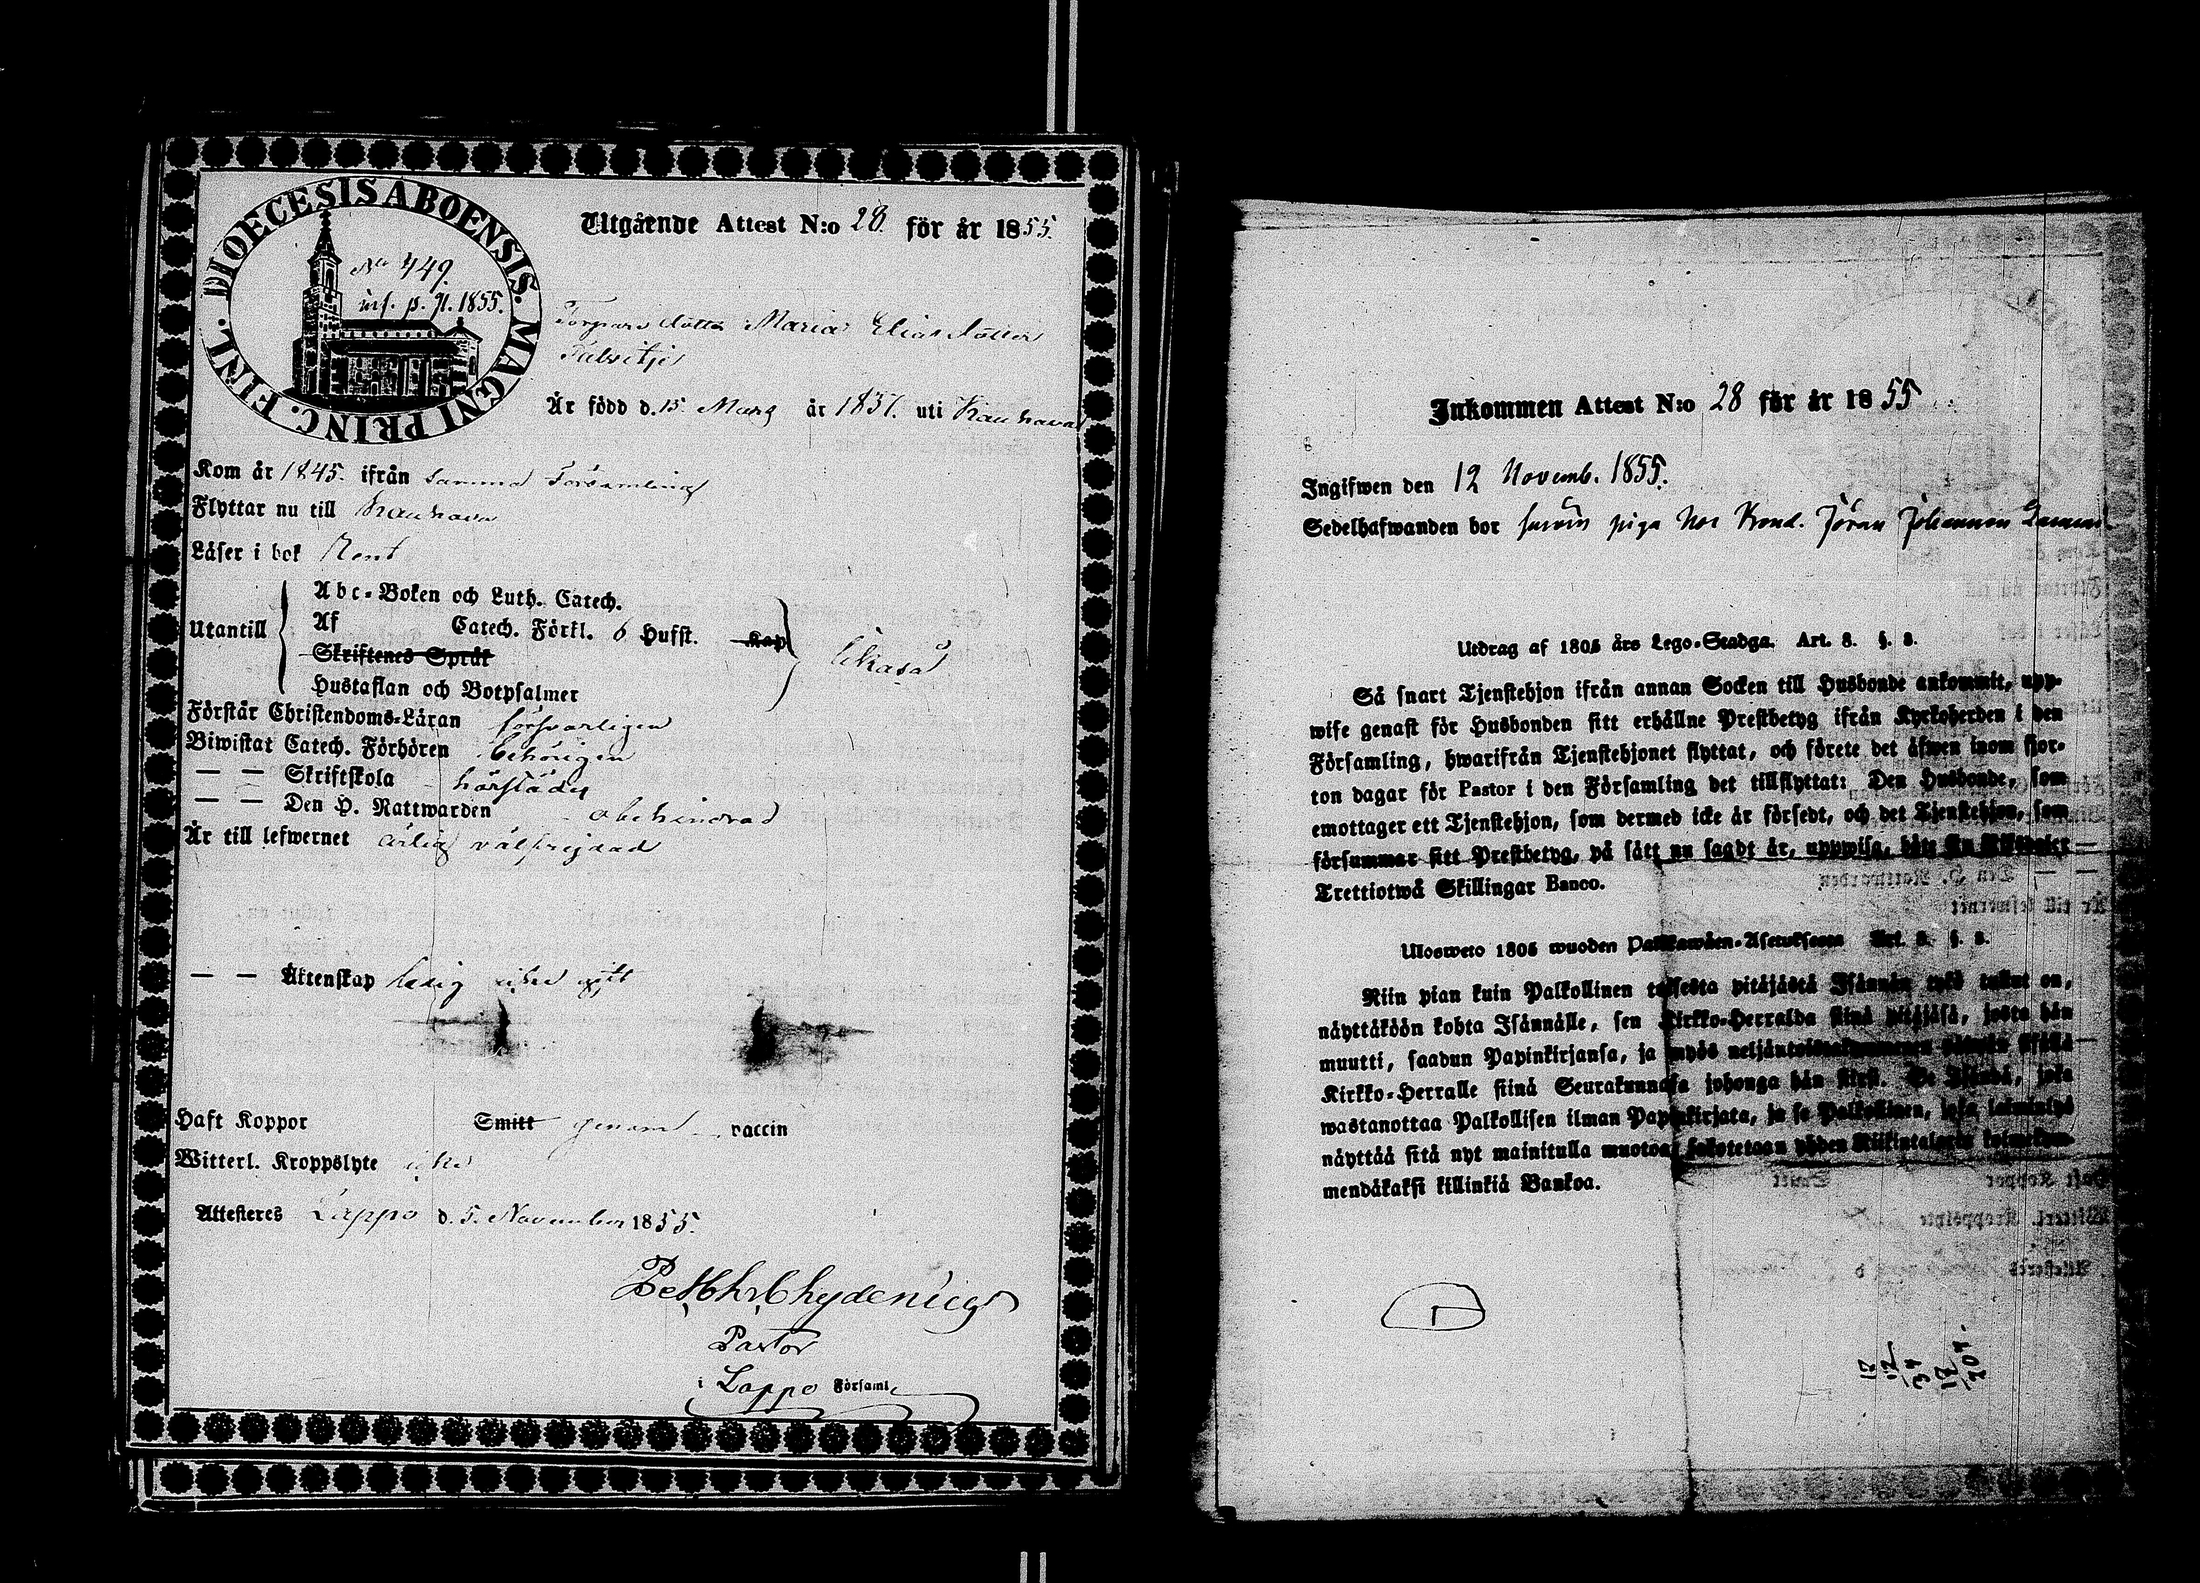 DIOECESIS ABOENSIS. MAGNI PRINC. FINL.
No 449.
inf. p. 91. 1855.
Utgående Attest N:o 28. för år 1855.
Torpare dotter Maria Elias dotter
Är född d. 15 Mars år 1837. uti Kauhava
Kom år 1845. ifrån samma Församling
Flyttar nu till Kauhava
Läser i bok Rent
Utantill
Abc-Boken och Luth. Catech.
Af Catech. Förkl. 6 Hufst. Kap
Skriftenes Språk
Hustaflan och Botpsalmer
Förstår Christendoms-Läran försvarligen
Biwistat Catech. Förhören behörigen
— — Skriftskola härstädes
— — Den H. Nattwarden obehindrad
Är till lefwernet ärlig välfrejdad
— — Äktenskap ledig
Haft Koppor Smitt genom vaccin
Witterl. Kroppslyte
Attesteres Lappo d. 5. November 1855.
Chydenius
Pastor
i Lappo Församl.
Inkommen Attest N:o 28 för år 1855
Ingifwen den 12 Novemb. 1855.
Sedelhafwanden bor såsom piga hos Bond. Jöran Johansson
Utdrag af 1805 års Lego-Stadga. Art. 3. §. 2.
Så snart Tjenstehjon ifrån annan Socken till Husbonde ankommit, upp-
wise genast för Husbonden sitt erhållne Prestbetyg ifrån Kyrkoherden i den
Församling, hwarifrån Tjenstehjonet flyttat, och förete det äfwen inom fjor-
ton dagar för Pastor i den Församling det tillflyttat: Den Husbonde, som
emottager ett Tjenstehjon, som dermed icke är försedt, och det Tjenstehjon, som
försummar sitt Prestbetyg, på sätt nu sagdt är, uppwisa, böte En Riksdaler
Trettiotwå Skillingar Banco.
Ulosweto 1805 wuoden Palkkawäen-Asetuksesta Art. 3. §. 2.
Niin pian kuin Palkollinen toisesta pitäjästä Isännän työ tullut on,
näyttäköön kohta Isännälle, sen Kirkko-Herralda siinä pitäjäsä, josta hän
muutti, saadun Papinkirjansa, ja myös neljäntoistakymmenen päiwän sisällä
Kirkko-Herralle siinä Seurakunnasa johonga hän siirsi. Se Isändä, joka
wastanottaa Palkollisen ilman Papinkirjata, ja se Palkollinen, joka laiminlyö
näyttää sitä nyt mainitulla muotoa, sakotetaan yhden Riikintalarin kolmekym-
mendäkaksi killinkiä Bankoa.